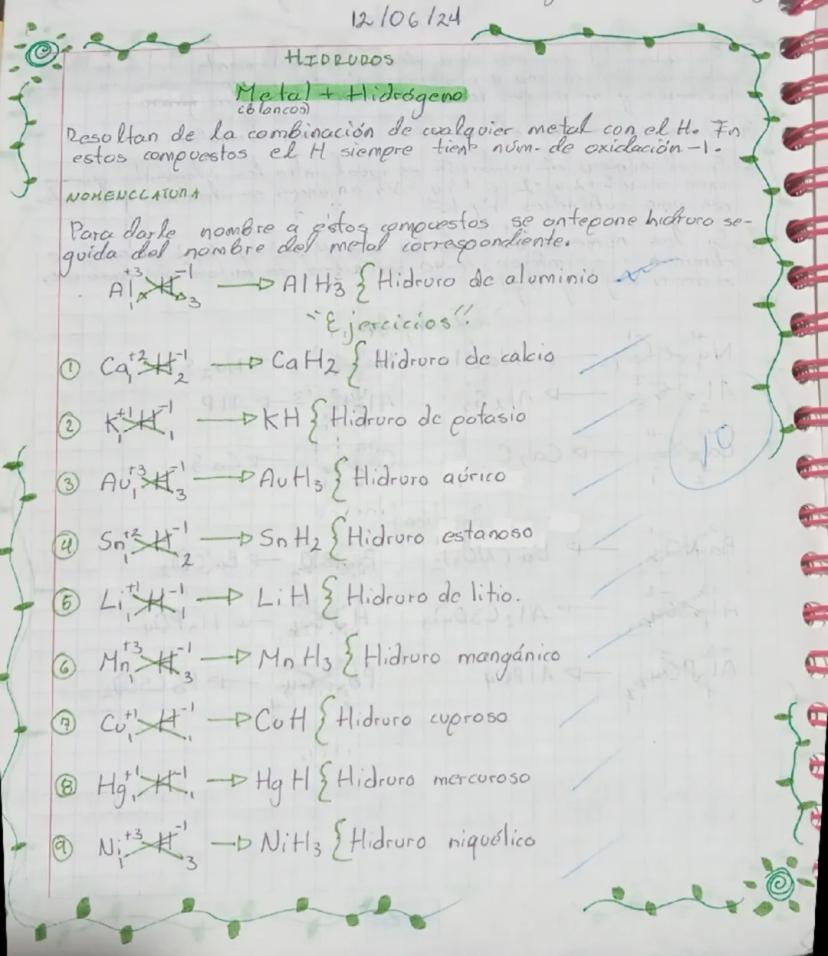 12/06/24
HIDRUDOS
Metal + Hidrógeno
(blancos)
Resoltan de la combinación de cualquier metal con el H. En
estos compuestos el H siempre tiene núm. de oxidación -1.
NOMENCLATURA
Para darle nombre a estos compuestos se antepone hidruro se-
guida del nombre del metal correspondiente.
Al+3 1 H-1 3 → AlH3 { Hidruro de aluminio
"Ejercicios"
① Ca+2 1 H-1 2 → CaH2 { Hidruro de calcio
② K+1 1 H-1 1 → KH { Hidruro de potasio
③ Au+3 1 H-1 3 → AuH3 { Hidruro aúrico
④ Sn+2 1 H-1 2 → SnH2 { Hidruro estanoso
⑤ Li+1 1 H-1 1 → LiH { Hidruro de litio.
⑥ Mn+3 1 H-1 3 → MnH3 { Hidruro mangánico
⑦ Cu+1 1 H-1 1 → CuH { Hidruro cuproso
⑧ Hg+1 1 H-1 1 → HgH { Hidruro mercuroso
⑨ Ni+3 1 H-1 3 → NiH3 { Hidruro niquélico
10